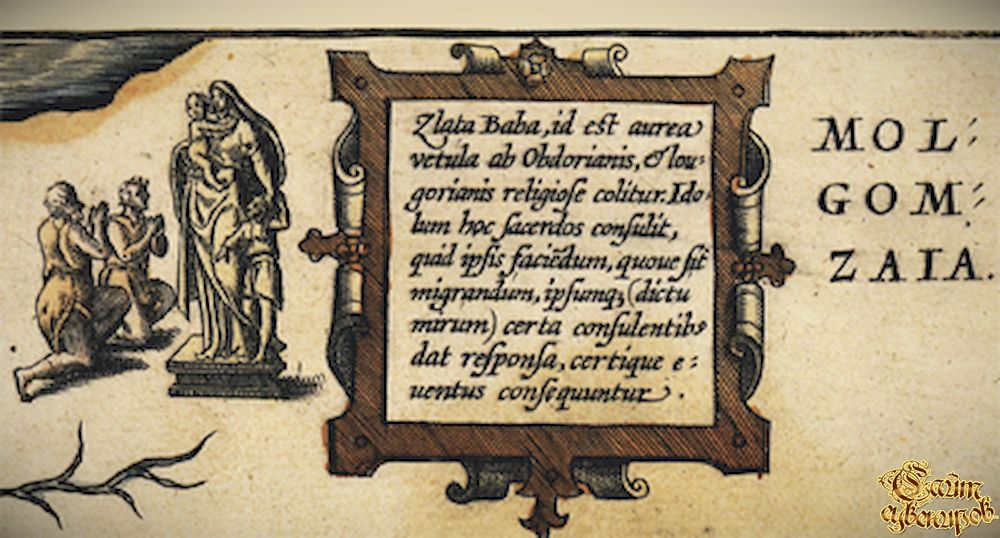 Zlata Baba, id eſt aurea
vetula ab Obdorianis, & Iou-
gorianis religioſe colitur. Ido-
lum hoc ſacerdos conſulit,
quid ipſis faciēdum, quoue ſit
migrandum, ipſumqꝫ (dictu
mirum) certa conſulentibꝰ
dat reſponſa, certique e-
uentus conſequuntur.
MOL-
GOM-
ZAIA.